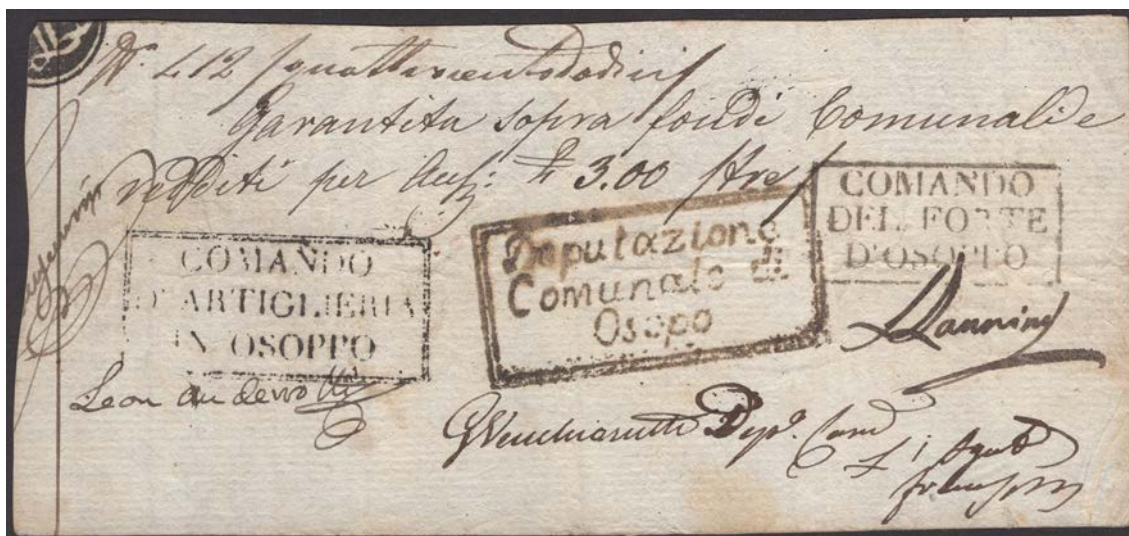 N.º 412 / quattrocentododici /
Garantita sopra fondi Comunali e
redditi per Aus: £ 3.00 / tre /
COMANDO
DEL FORTE
D'OSOPPO
COMANDO
D'ARTIGLIERIA
IN OSOPPO
Deputazione
Comunale di
Osopo
Leon andervolti
GVenchiarutti Dep.º Com